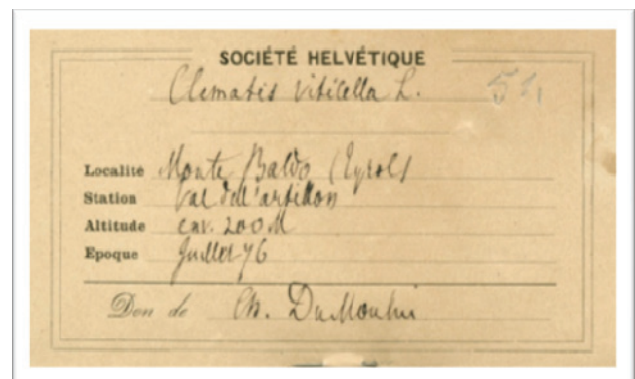 SOCIÉTÉ HELVÉTIQUE
Clematis viticella L.
Localité Monte Baldo (Tyrol)
Station Val dell'
Altitude env. 200 M
Epoque Juillet 76
Don de Ch. DuMoulin